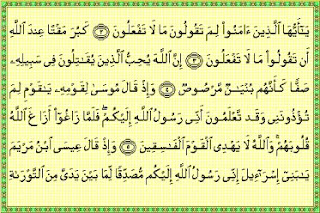 يَـٰٓأَيُّهَا ٱلَّذِينَ ءَامَنُوا۟ لِمَ تَقُولُونَ مَا لَا تَفْعَلُونَ ٢ كَبُرَ مَقْتًا عِندَ ٱللَّهِ
أَن تَقُولُوا۟ مَا لَا تَفْعَلُونَ ٣ إِنَّ ٱللَّهَ يُحِبُّ ٱلَّذِينَ يُقَـٰتِلُونَ فِى سَبِيلِهِۦ
صَفًّا كَأَنَّهُم بُنْيَـٰنٌ مَّرْصُوصٌ ٤ وَإِذْ قَالَ مُوسَىٰ لِقَوْمِهِۦ يَـٰقَوْمِ لِمَ
تُؤْذُونَنِى وَقَد تَّعْلَمُونَ أَنِّى رَسُولُ ٱللَّهِ إِلَيْكُمْ ۖ فَلَمَّا زَاغُوٓا۟ أَزَاغَ ٱللَّهُ
قُلُوبَهُمْ ۚ وَٱللَّهُ لَا يَهْدِى ٱلْقَوْمَ ٱلْفَـٰسِقِينَ ٥ وَإِذْ قَالَ عِيسَى ٱبْنُ مَرْيَمَ
يَـٰبَنِىٓ إِسْرَٰٓءِيلَ إِنِّى رَسُولُ ٱللَّهِ إِلَيْكُم مُّصَدِّقًا لِّمَا بَيْنَ يَدَىَّ مِنَ ٱلتَّوْرَىٰةِ